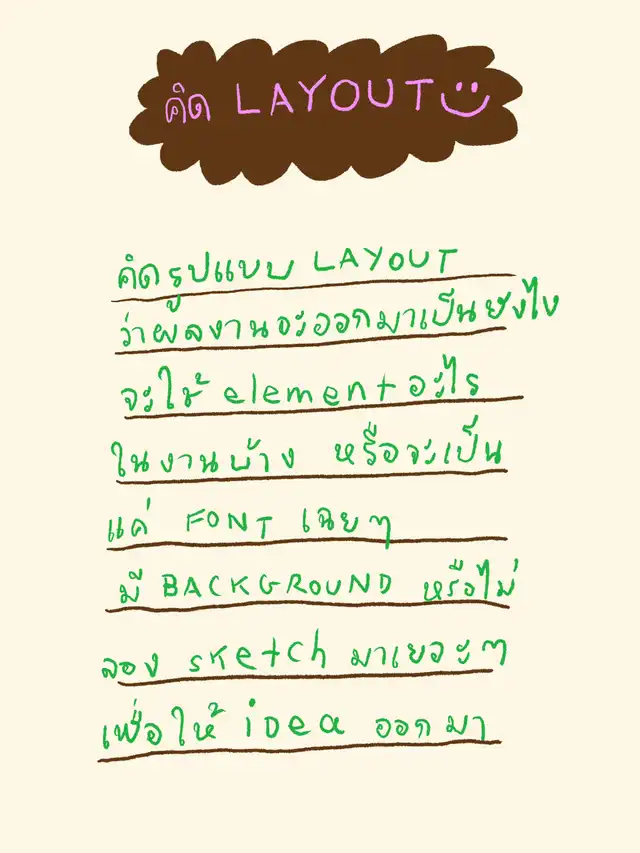 คิด LAYOUT
คิดรูปแบบ LAYOUT
ว่าผลงานจะออกมาเป็นยังไง
จะใช้ element อะไร
ในงานบ้าง หรือจะเป็น
แค่ FONT เฉยๆ
มี BACKGROUND หรือไม่
ลอง sketch มาเยอะๆ
เพื่อให้ idea ออกมา